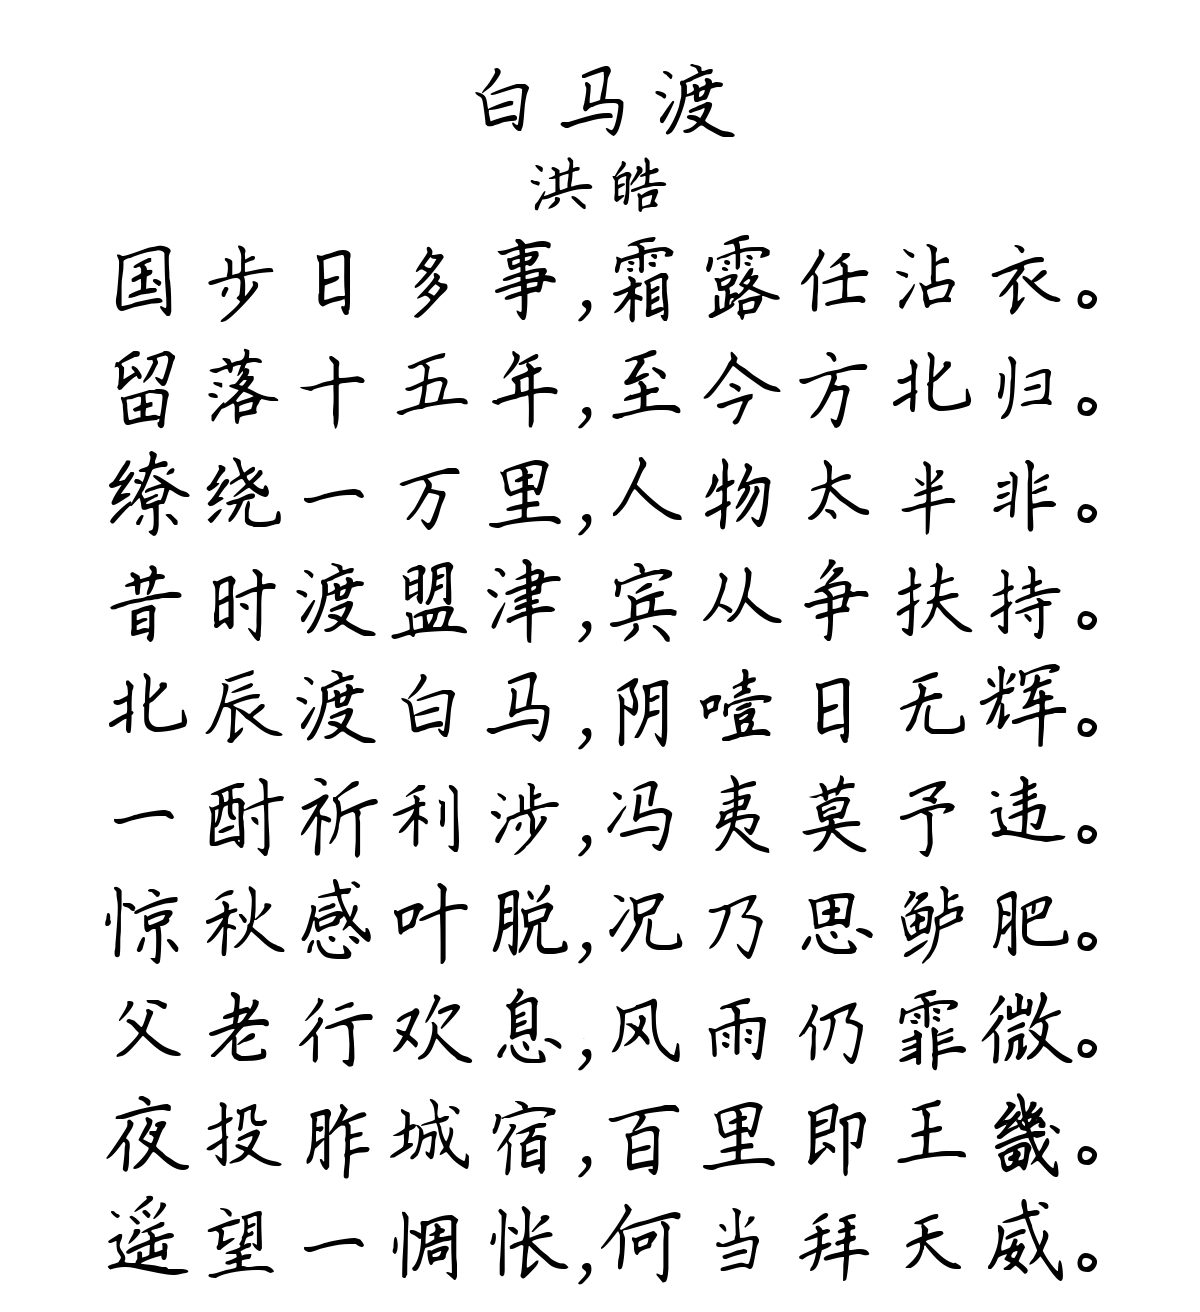 白马渡
洪皓
国步日多事,霜露任沾衣。
留落十五年,至今方北归。
缭绕一万里,人物太半非。
昔时渡盟津,宾从争扶持。
北辰渡白马,阴噎日无辉。
一酎祈利涉,冯夷莫予违。
惊秋感叶脱,况乃思鲈肥。
父老行欢息,风雨仍霏微。
夜投胙城宿,百里即王畿。
遥望一惆怅,何当拜天威。